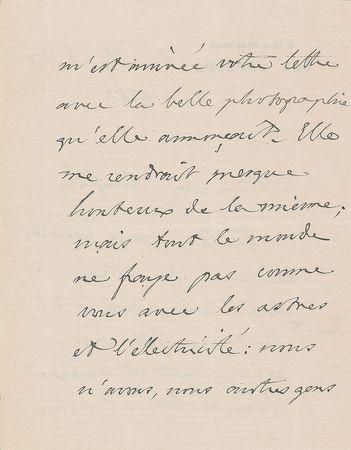 m'est arrivée votre lettre
avec la belle photographie
qu'elle annonçait. Elle
me rendrait presque
honteux de la mienne;
mais tout le monde
ne fraye pas comme
vous avec les astres
et l'électricité: nous
n'avons, nous autres gens